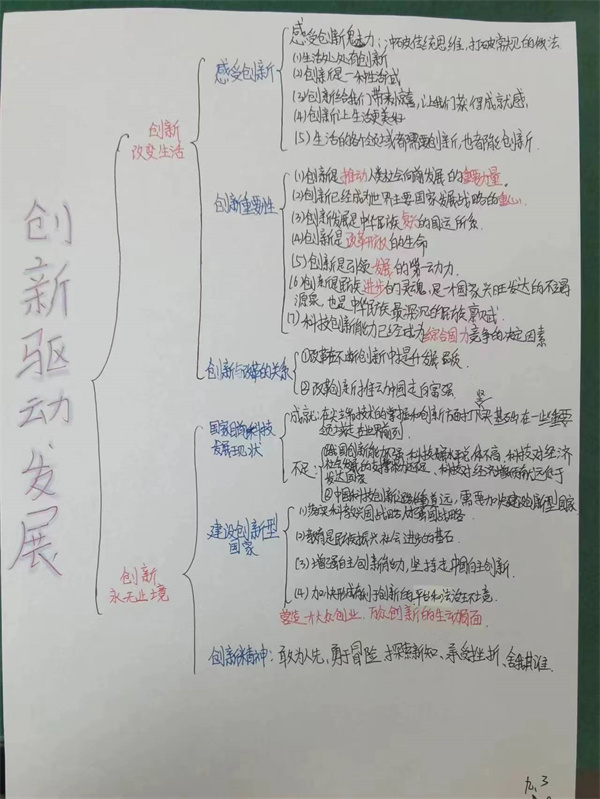 创新驱动发展
创新
改变生活
感受创新
感受创新魅力:冲破传统思维,打破常规的做法
(1)生活处处有创新
(2)创新是一种生活方式
(3)创新给我们带来惊喜,让我们获得成就感
(4)创新让生活更美好
(5)生活的各个领域都需要创新,也都能创新.
创新重要性
(1)创新是推动人类社会向前发展的重要力量。
(2)创新已经成为世界主要国家发展战略的核心
(3)创新发展是中华民族复兴的国运所系
(4)创新是改革开放的生命
(5)创新是引领发展的第一动力
(6)创新是民族进步的灵魂,是一个国家兴旺发达的不竭
源泉,也是中华民族最深沉的民族禀赋
(7)科技创新能力已经成为综合国力竞争的决定因素
创新与改革的关系
①改革在不断创新中提升发展品质
②改革创新推动中国走向富强
创新
永无止境
国家目前科技
发展现状
成就:在尖端技术的掌握和创新方面打下坚实基础在一些重要
领域走在世界前列
不足:
科技对经济
发达国家
②中国科技创新 需要加快建设创新型国家
建设创新型
国家
(2)教育是民族振兴社会进步的基石
(3)增强自主创新能力,坚持走中国自主创新.
(4)加快形成有利于创新的 平台和法治环境
营造大众创业,万众创新的生动局面
创新精神:敢为人先,勇于冒险 探索新知、承受挫折、舍我其谁
九.3